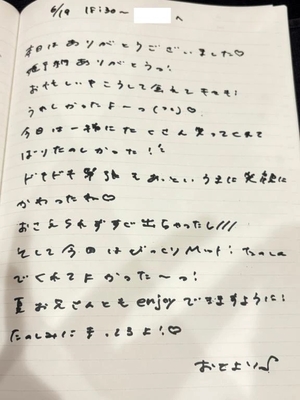 6/19 18:30～ へ
本日はありがとうございました♡
ありがとうっ!
こうして会えてとても
うれしかったよーっ(つo)♡
今日は一緒にたくさん笑ってくれて
ばりたのしかった!!
ドキドキ緊張もあっというまに笑顔に
かわったね♡
おこえられずすぐ出ちゃったし///
そして今日はびっくりMust! たのしん
でくれてよかった～っ!
夏 お兄さんとも enjoy できますように!
たのしみにまってるよ!♡
おとより♪